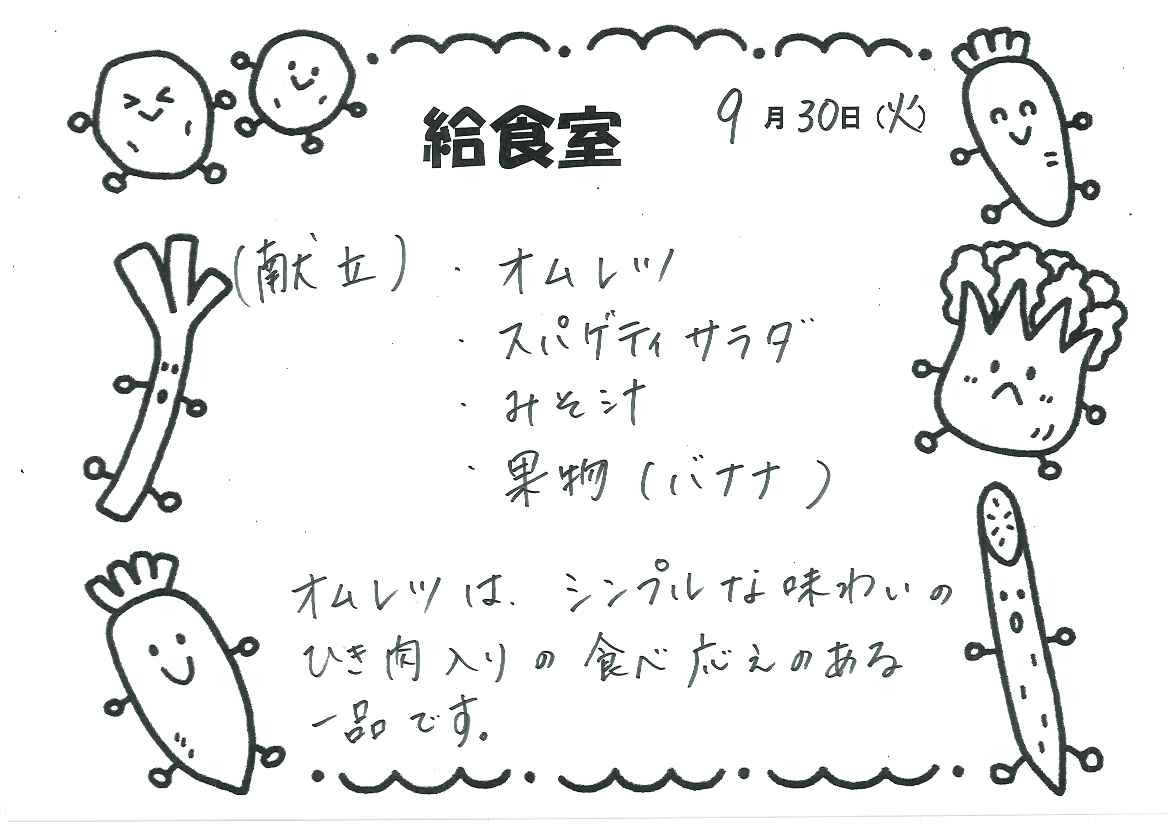 給食室
9月30日(火)
(献立)・オムレツ
・スパゲティサラダ
・みそ汁
・果物(バナナ)
オムレツは、シンプルな味わいの
ひき肉入りの食べ応えのある
一品です。